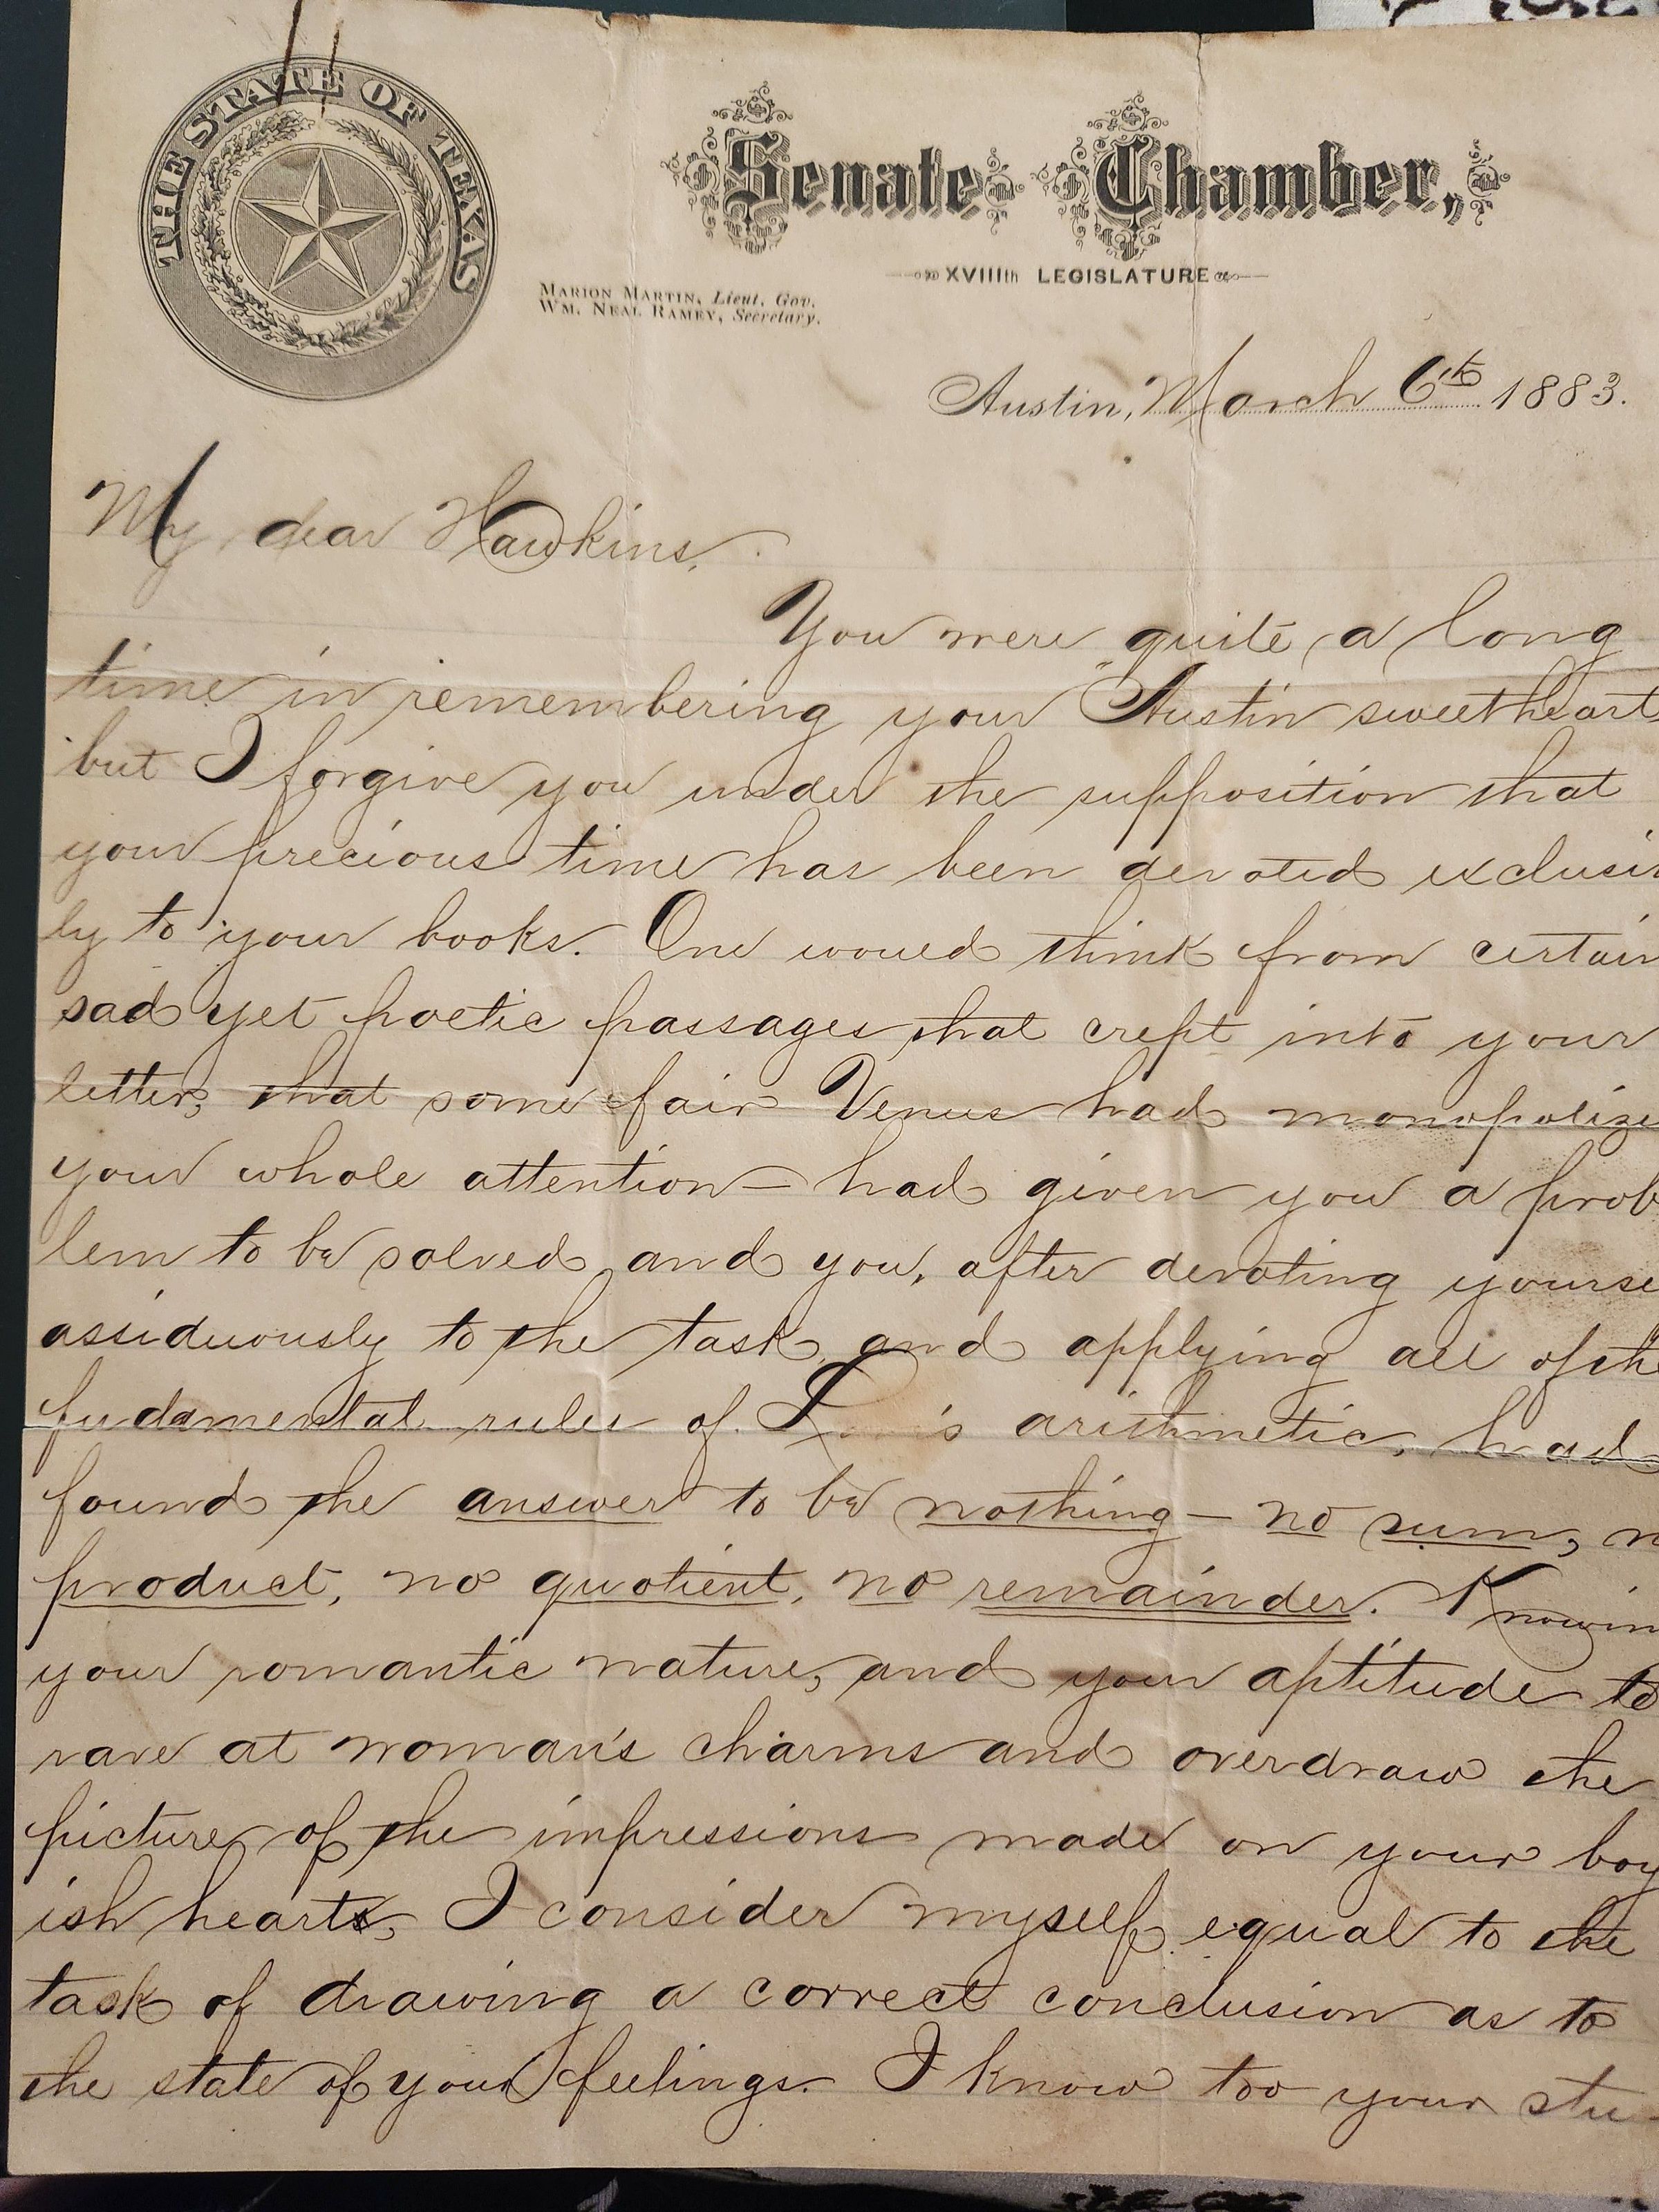 THE STATE OF TEXAS
Senate Chamber,
XVIIIth LEGISLATURE
MARION MARTIN, Lieut. Gov.
WM. NEAL RAMEY, Secretary.
Austin, March 6th 1883.
My dear Hawkins,
You were quite a long
time in remembering your "Austin sweetheart
but I forgive you under the supposition that
your precious time has been devoted exclusiv
ly to your books. One would think from certain
sad yet poetic passages that crept into your
letter, that some fair Venus had monopolize
your whole attention — had given you a prob
lem to be solved, and you, after devoting yourse
assiduously to the task, and applying all of the
fudamental rules of 's arithmetic, had
found the answer to be nothing — no sum, n
product, no quotient, no remainder. Knowin
your romantic nature, and your aptitude to
rave at woman's charms and overdraw the
picture of the impressions made on your boy
ish heart, I consider myself equal to the
task of drawing a correct conclusion as to
the state of your feelings. I know too your stu-